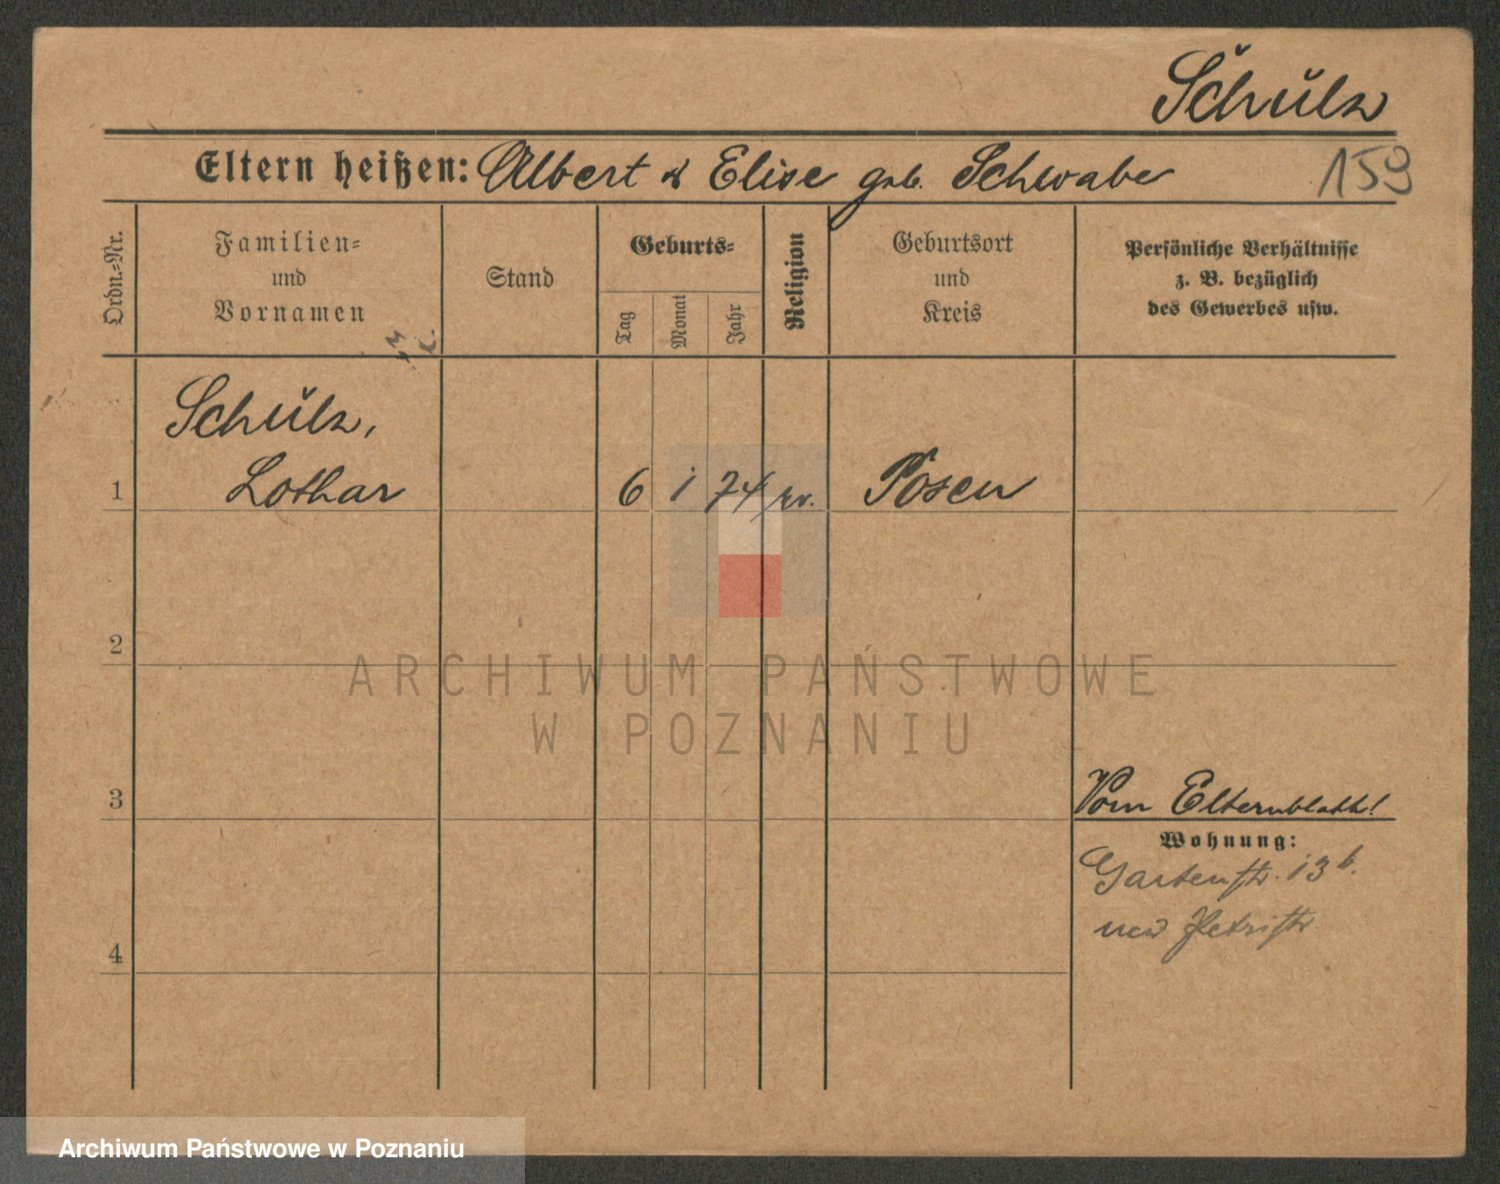 Schulz
Eltern heißen: Albert & Elise geb. Schwabe 159
Ordn.-Nr.
Familien-
und
Vornamen
Stand
Geburts-
Tag
Monat
Jahr
Religion
Geburtsort
und
Kreis
Persönliche Verhältnisse
z. B. bezüglich
des Gewerbes usw.
Schulz,
1 Lothar 6 1 74 ev. Posen
2
3
4
Vom Elternblatt!
Wohnung:
Gartenstr. 13 b.
Petristr
ARCHIWUM PAŃSTWOWE
W POZNANIU
Archiwum Państwowe w Poznaniu